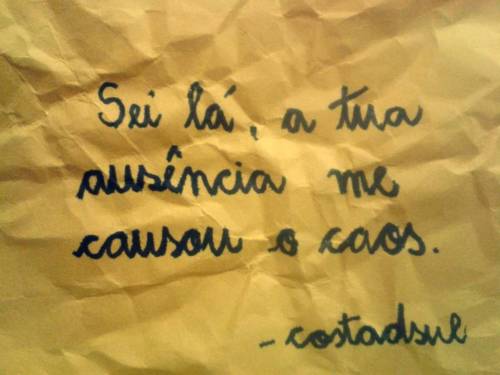 Sei lá, a tua
ausência me
causou o caos.
- costadsul